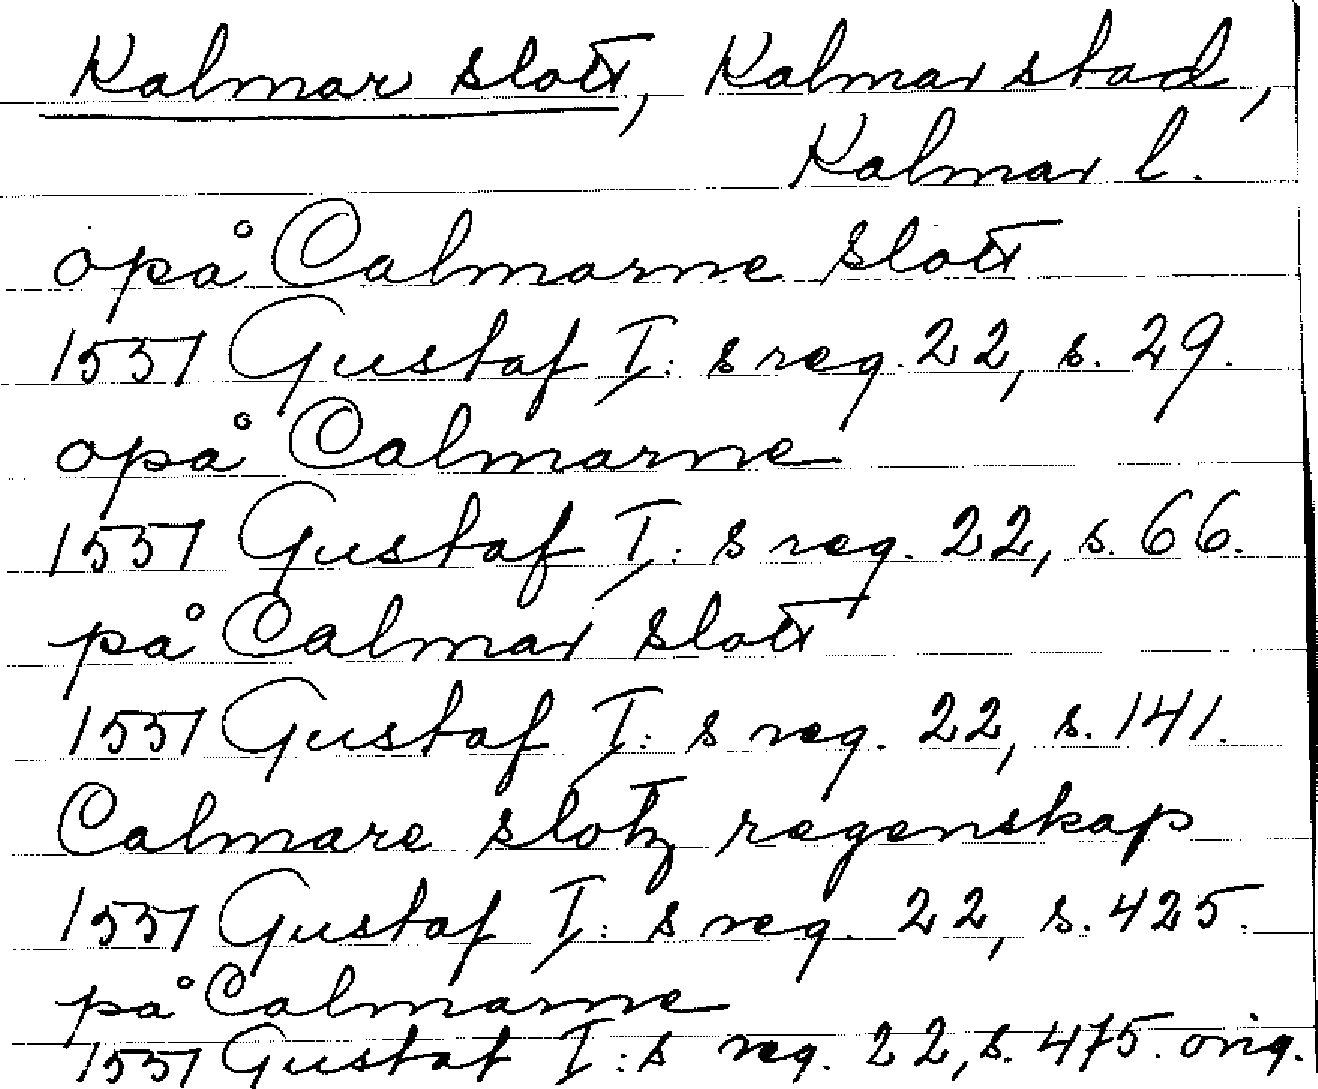 Kalmar slott, Kalmar stad,
Kalmar l.
opå Calmarne slott
1551 Gustaf I: s reg. 22, s. 29.
opå Calmarne
1551 Gustaf I: s reg. 22, s. 66.
på Calmar slott
1551 Gustaf I: s reg. 22, s. 141.
Calmare slotz regenskap
1551 Gustaf I: s reg. 22, s. 425.
på Calmarne
1551 Gustaf I: s reg. 22, s. 475. orig.